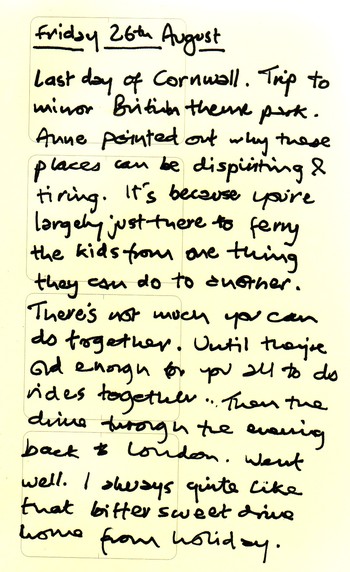 Friday 26th August
Last day of Cornwall. Trip to
minor British theme park.
Anne pointed out why these
places can be dispiriting &
tiring. It's because you're
largely just there to ferry
the kids from one thing
they can do to another.
There's not much you can
do together. Until they're
old enough for you all to do
rides together... Then the
drive through the evening
back to London. Went
well. I always quite like
that bitter sweet drive
home from holiday.